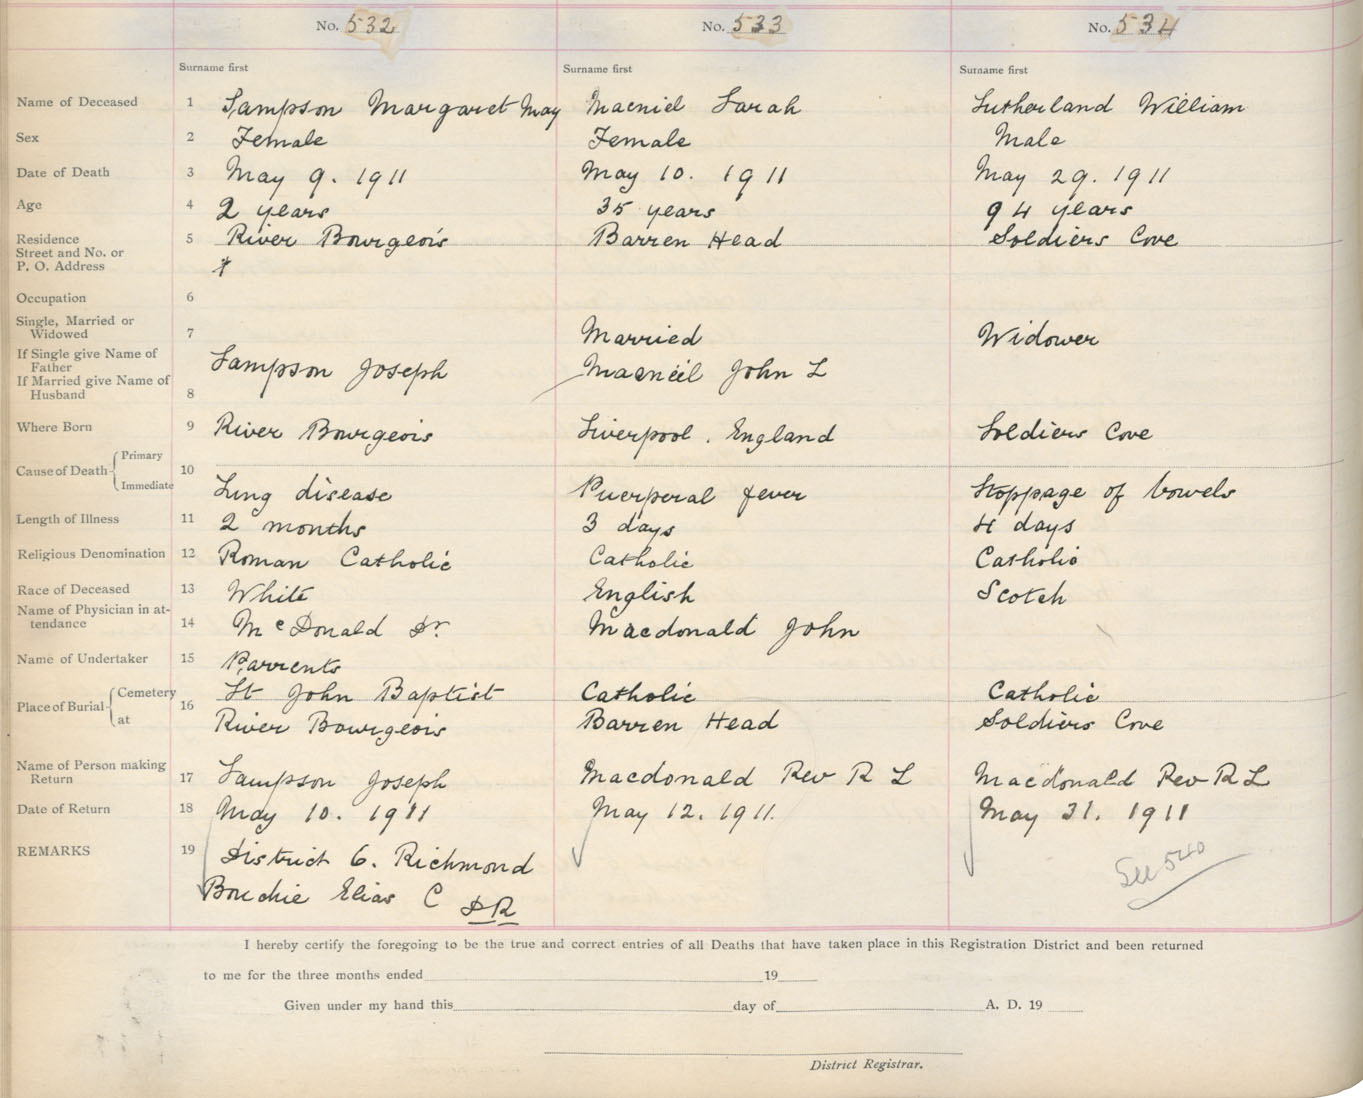 No. 532 No. 533 No. 534
Surname first Surname first Surname first
Name of Deceased 1 Sampson Margaret May Macniel Sarah Sutherland William
Sex 2 Female Female Male
Date of Death 3 May 9. 1911 May 10. 1911 May 29. 1911
Age 4 2 years 35 years 94 years
Residence 5 River Bourgeois Barren Head Soldiers Cove
Street and No. or
P. O. Address
Occupation 6
Single, Married or
Widowed 7 Married Widower
If Single give Name of
Father Sampson Joseph Macneil John L
If Married give Name of
Husband 8
Where Born 9 River Bourgeois Liverpool. England Soldiers Cove
Primary
Cause of Death 10
Immediate Lung disease Puerperal fever Stoppage of bowels
Length of Illness 11 2 months 3 days 4 days
Religious Denomination 12 Roman Catholic Catholic Catholic
Race of Deceased 13 White English Scotch
Name of Physician in at-
tendance 14 McDonald Dr. Macdonald John
Name of Undertaker 15 Parrents
Cemetery St John Baptist Catholic Catholic
Place of Burial 16
at River Bourgeois Barren Head Soldiers Cove
Name of Person making
Return 17 Sampson Joseph Macdonald Rev R L Macdonald Rev R L
Date of Return 18 May 10. 1911 May 12. 1911. May 31. 1911
REMARKS 19 District 6. Richmond See 540
Bouchie Elias C DR
I hereby certify the foregoing to be the true and correct entries of all Deaths that have taken place in this Registration District and been returned
to me for the three months ended 19
Given under my hand this day of A. D. 19
District Registrar.